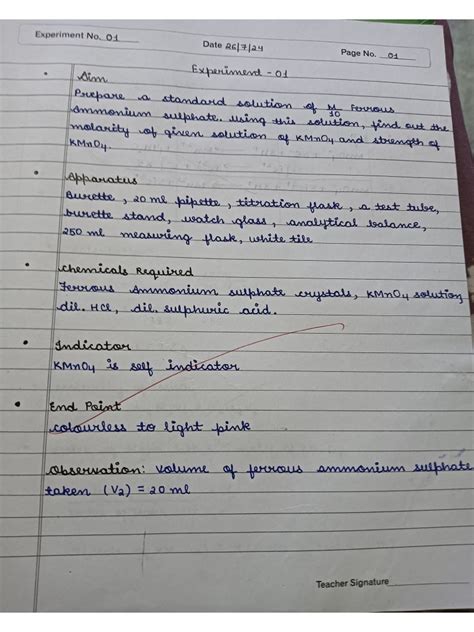 Experiment No. 01
Date 26/7/24
Page No. 01
Experiment - 01
Aim
Prepare a standard solution of M/10 Ferrous
Ammonium sulphate. Using this solution, find out the
molarity of given solution of KMnO4 and strength of
KMnO4.
Apparatus
Burette, 20 ml pipette, titration flask, a test tube,
burette stand, watch glass, analytical balance,
250 ml measuring flask, white tile
Chemicals Required
Ferrous Ammonium sulphate crystals, KMnO4 solution,
dil. HCl, dil. sulphuric acid.
Indicator
KMnO4 is self indicator
End Point
colourless to light pink
Observation: Volume of ferrous ammonium sulphate
taken (V2) = 20 ml
Teacher Signature